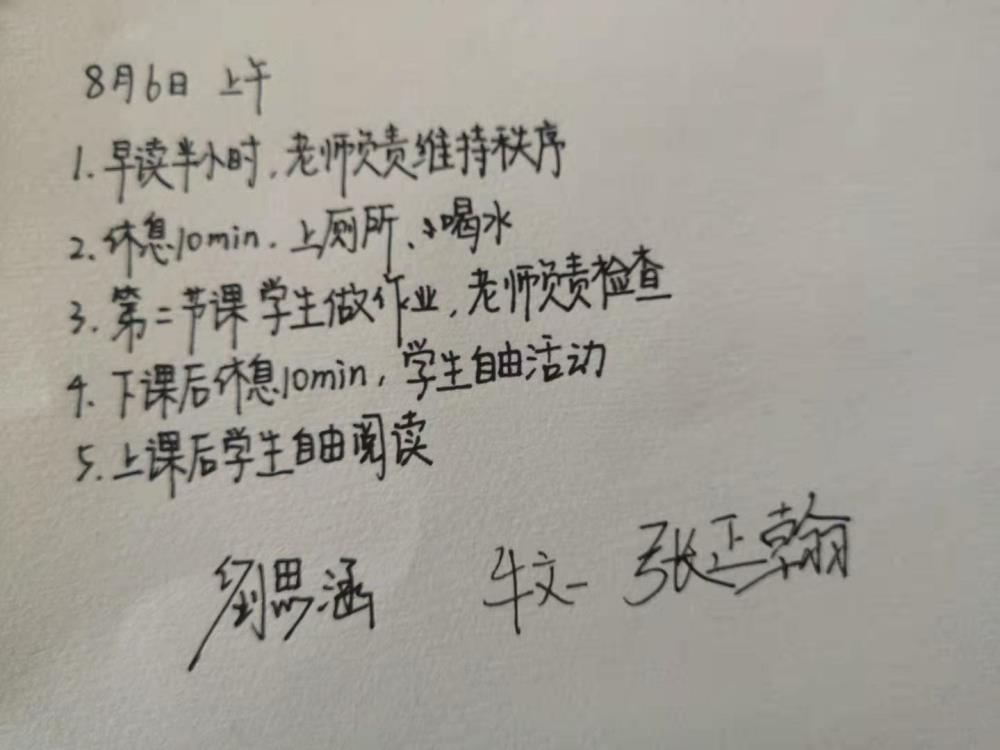 8月6日 上午
1. 早读半小时,老师负责维持秩序
2. 休息10min,上厕所、喝水
3. 第二节课学生做作业,老师负责检查
4. 下课后休息10min,学生自由活动
5. 上课后学生自由阅读
刘思涵 牛文一 张正翰